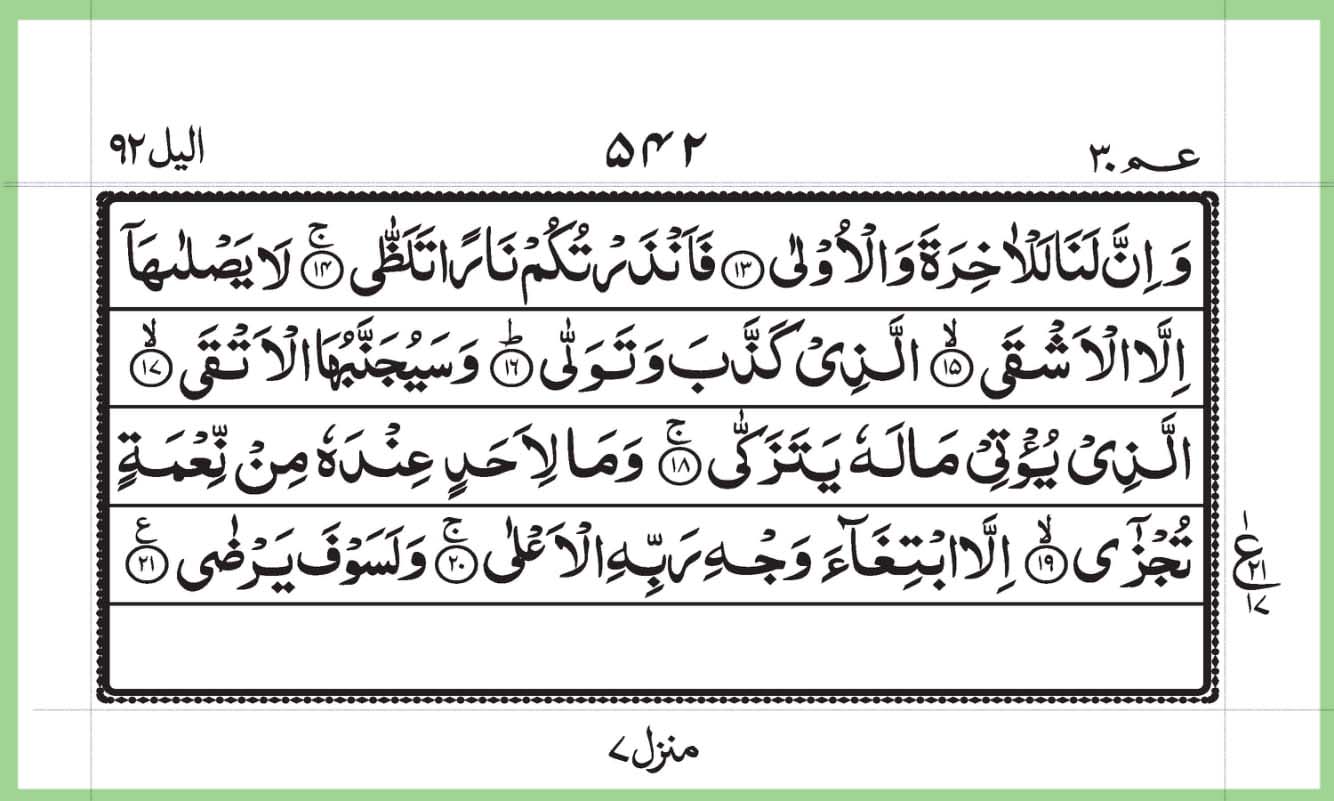 عــم ۳۰ ۵۴۲ الیل ۹۲
وَ اِنَّ لَنَا لَلْاٰخِرَةَ وَ الْاُوْلٰى ۱۳ فَاَنْذَرْتُكُمْ نَارًا تَلَظّٰى ۚ ۱۴ لَا یَصْلٰىهَاۤ
اِلَّا الْاَشْقَى ۙ ۱۵ الَّذِیْ كَذَّبَ وَ تَوَلّٰى ؕ ۱۶ وَ سَیُجَنَّبُهَا الْاَتْقَى ۙ ۱۷
الَّذِیْ یُؤْتِیْ مَالَهٗ یَتَزَكّٰى ۚ ۱۸ وَ مَا لِاَحَدٍ عِنْدَهٗ مِنْ نِّعْمَةٍ
تُجْزٰۤى ۙ ۱۹ اِلَّا ابْتِغَآءَ وَجْهِ رَبِّهِ الْاَعْلٰى ۚ ۲۰ وَ لَسَوْفَ یَرْضٰى ۲۱ ع
۱
ع ۲۱
۱۷
منزل ۷